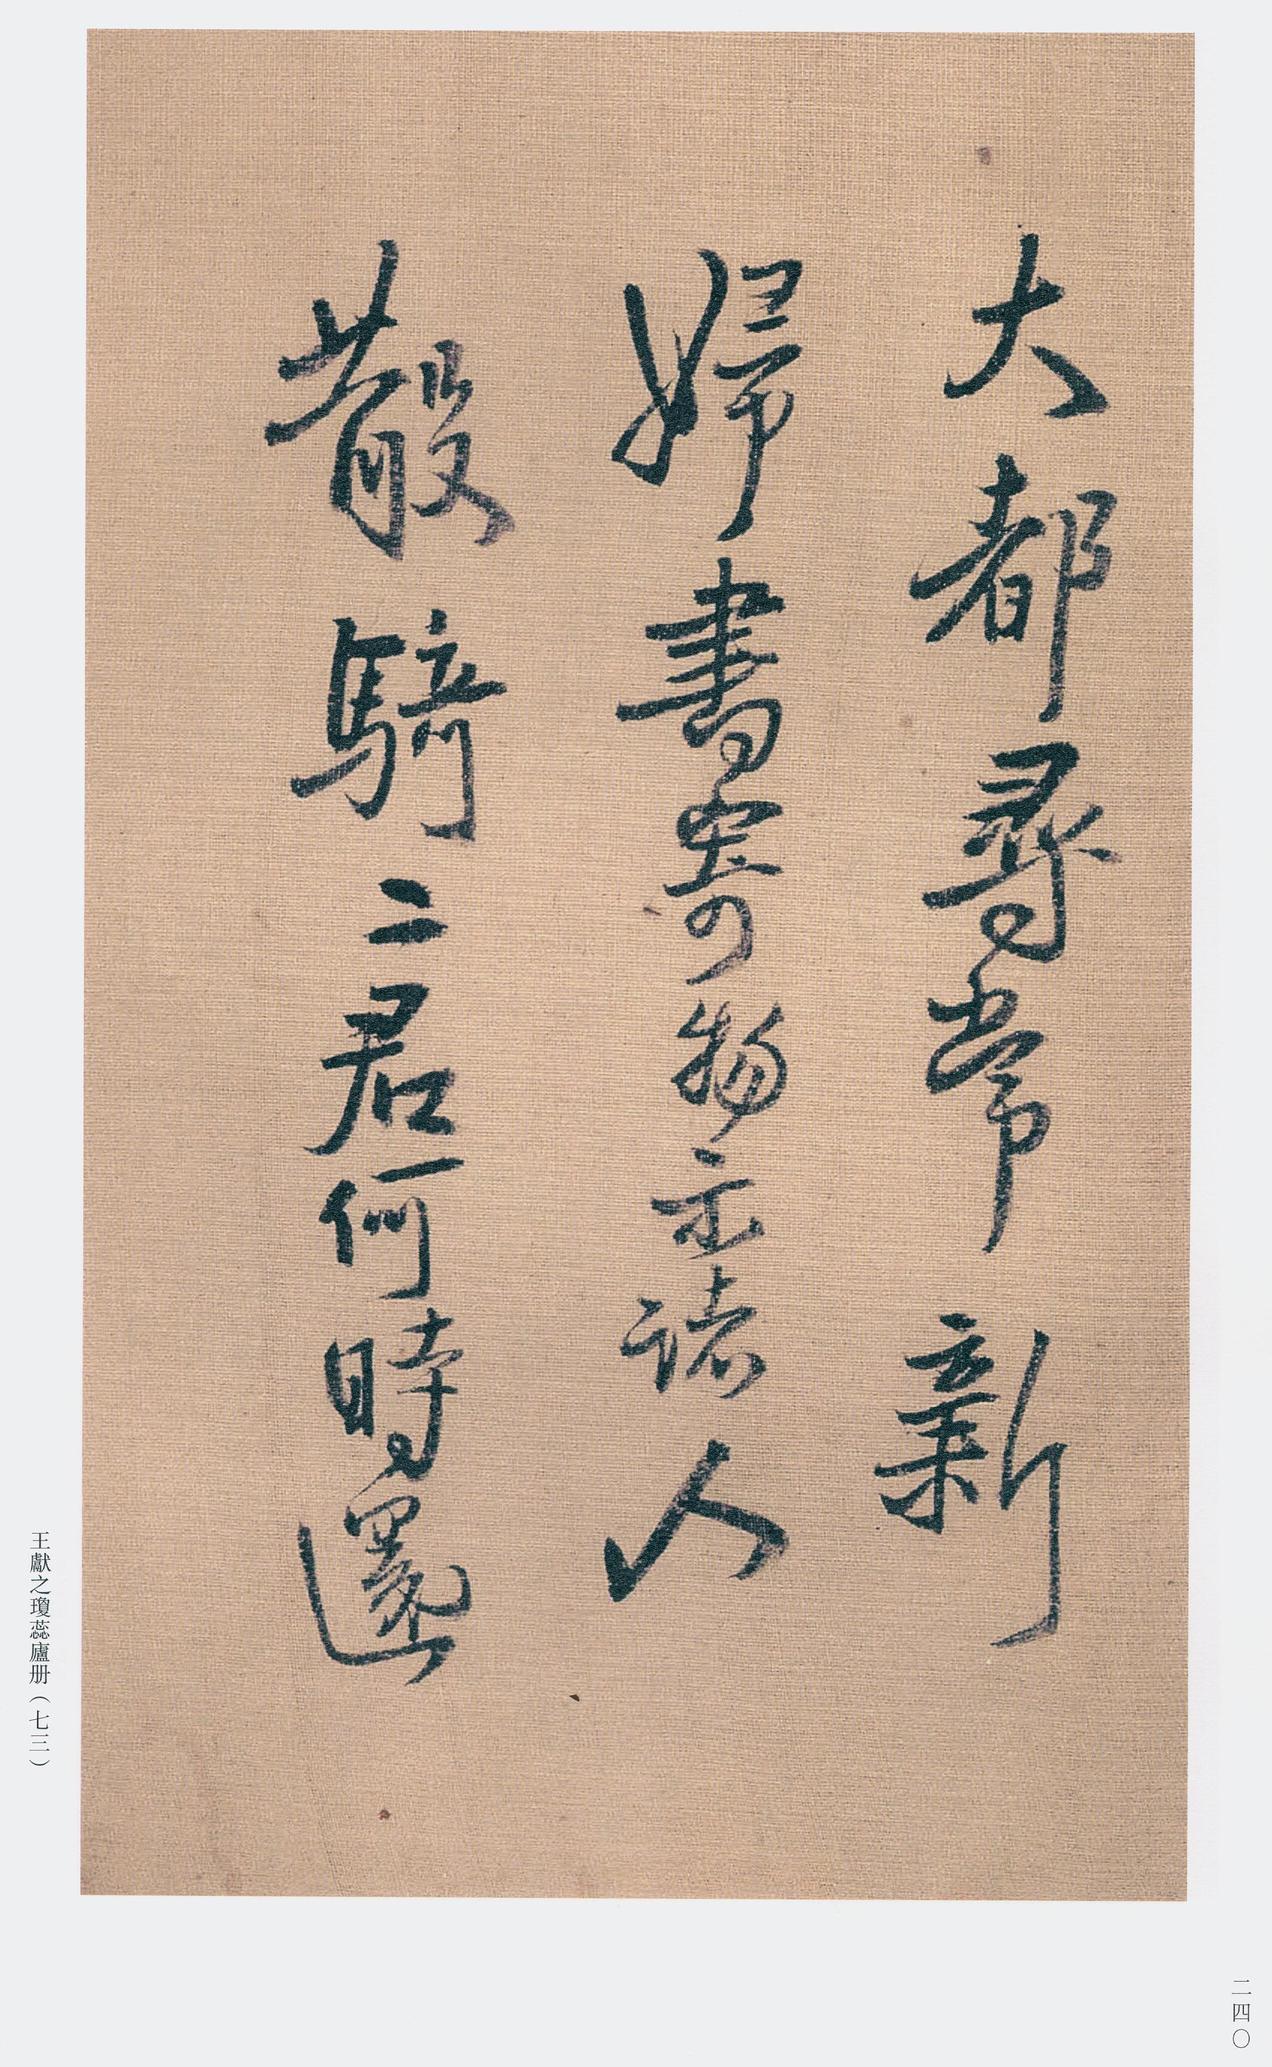 大都尋常新
婦書寄物示諸人
散騎二君何時還
王獻之瓊蕊廬册（七三）
二四〇